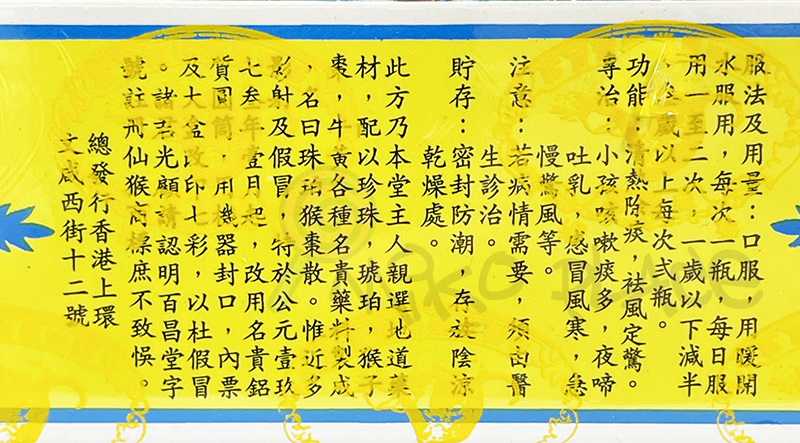 服法及用量：口服，用暖開
水服用，每次一瓶，每日服
用一至二次，一歲以下減半
，歲以上每次弍瓶。
功能：清熱除痰，祛風定驚。
專治：小孩咳嗽痰多，夜啼
吐乳，感冒風寒，急
慢驚風等。
注意：若病情需要，須由醫
生診治。
貯存：密封防潮，存放陰涼
乾燥處。
此方乃本堂主人親選地道藥
材，配以珍珠，琥珀，猴子
棗，牛黃各種名貴藥料製成
，名曰珠珀猴棗散。惟近多
影射及假冒，特於公元壹玖
七叁年壹月起，改用名貴鋁
質圓筒，用機器封口，內票
及大盒改印七彩，以杜假冒
。諸君光顧請認明百昌堂字
號註冊仙猴商標庶不致悞。
總發行香港上環
文咸西街十二號
NIKO PLACE